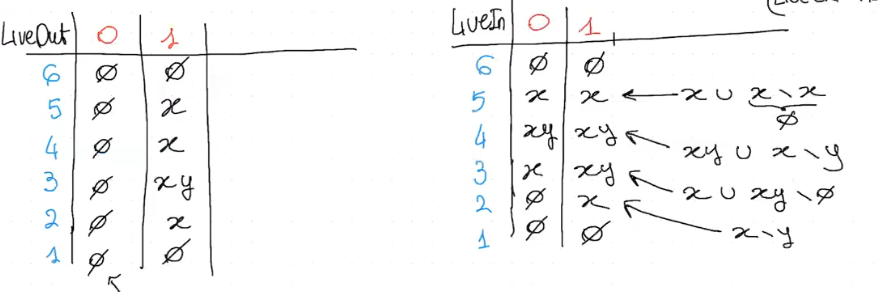 LiveOut 0 1
6 ∅ ∅
5 ∅ x
4 ∅ x
3 ∅ xy
2 ∅ x
1 ∅ ∅
LiveIn 0 1
6 ∅ ∅
5 x x ← x ∪ x \ x
∅
4 xy xy ← xy ∪ x \ y
3 x xy ← x ∪ xy \ ∅
2 ∅ x ← x \ y
1 ∅ ∅